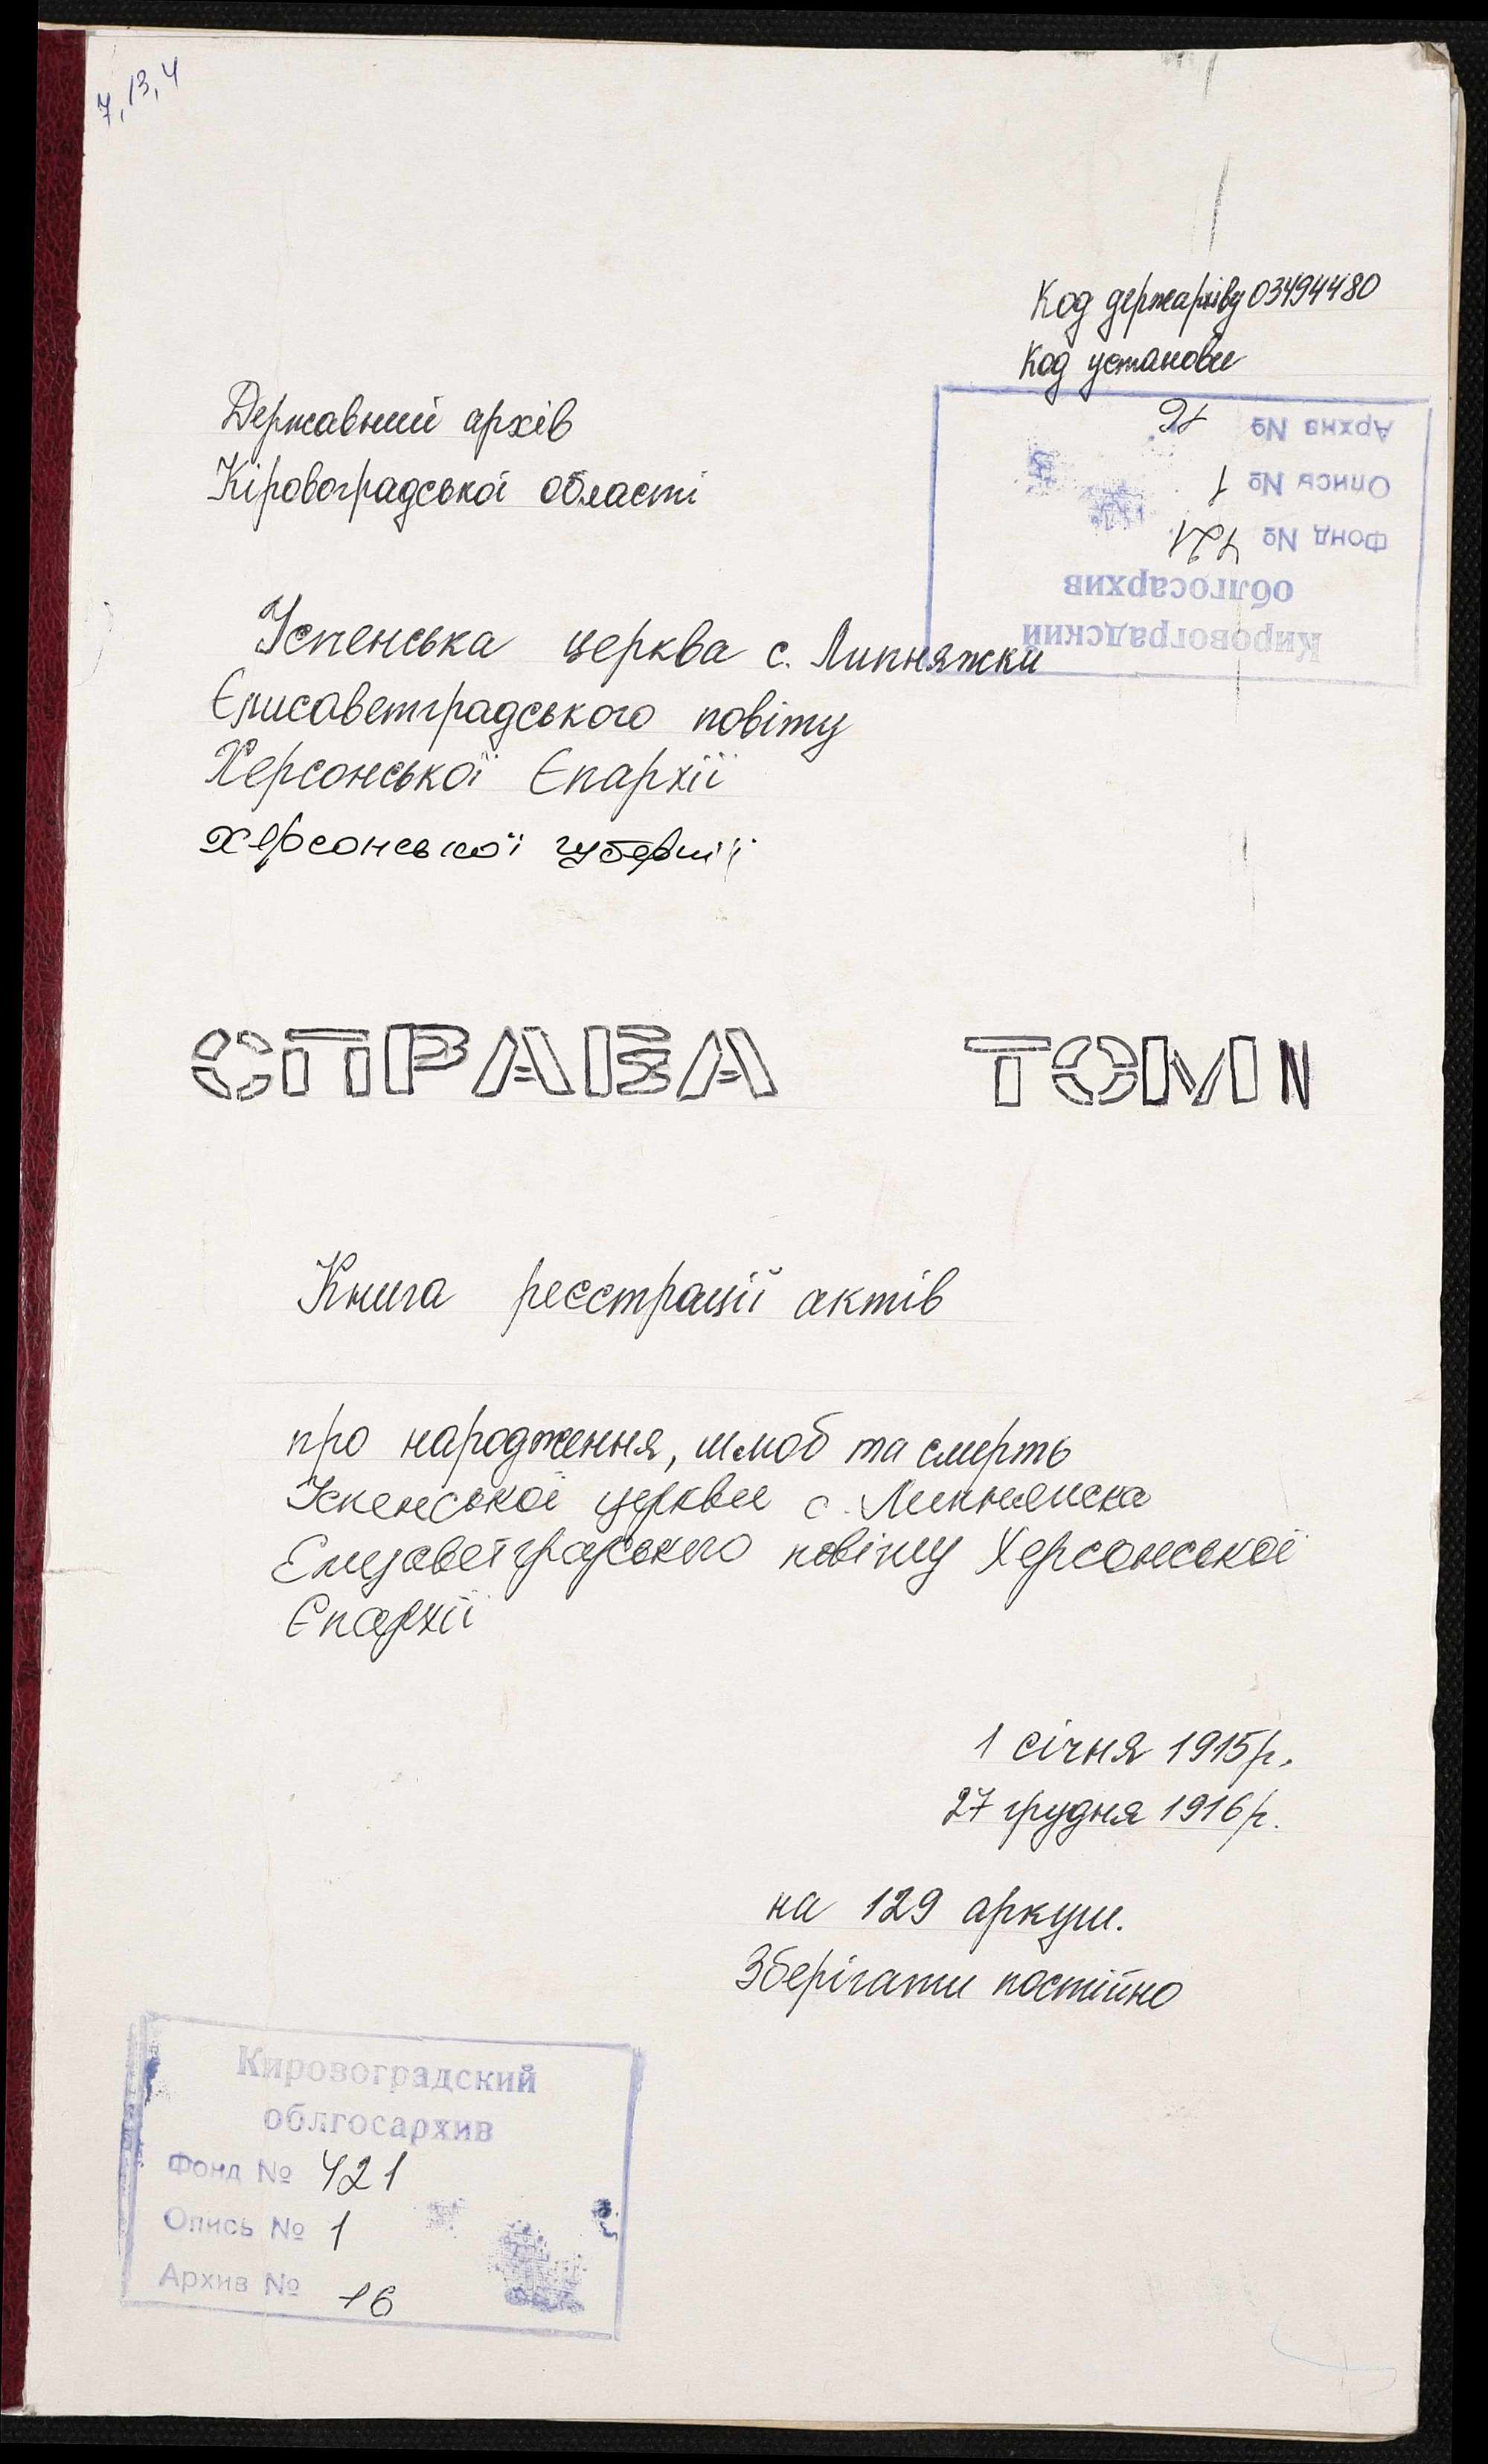 7, 13, 4
Код держархіву 03494480
Код установи
Державний архів
Кіровоградської області
Кировоградский
облгосархив
Фонд № 421
Опись № 1
Архив № 16
Успенська церква с. Липняжки
Єлисаветградського повіту
Херсонської Єпархії
Херсонської губернії
СПРАВА ТОМ N
Книга реєстрації актів
про народження, шлюб та смерть
Успенської церкви с. Липняжка
Елизаветградського повіту Херсонської
Єпархії
1 січня 1915р.
27 грудня 1916р.
на 129 аркуш.
Зберігати постійно
Кировоградский
облгосархив
Фонд № 421
Опись № 1
Архив № 16